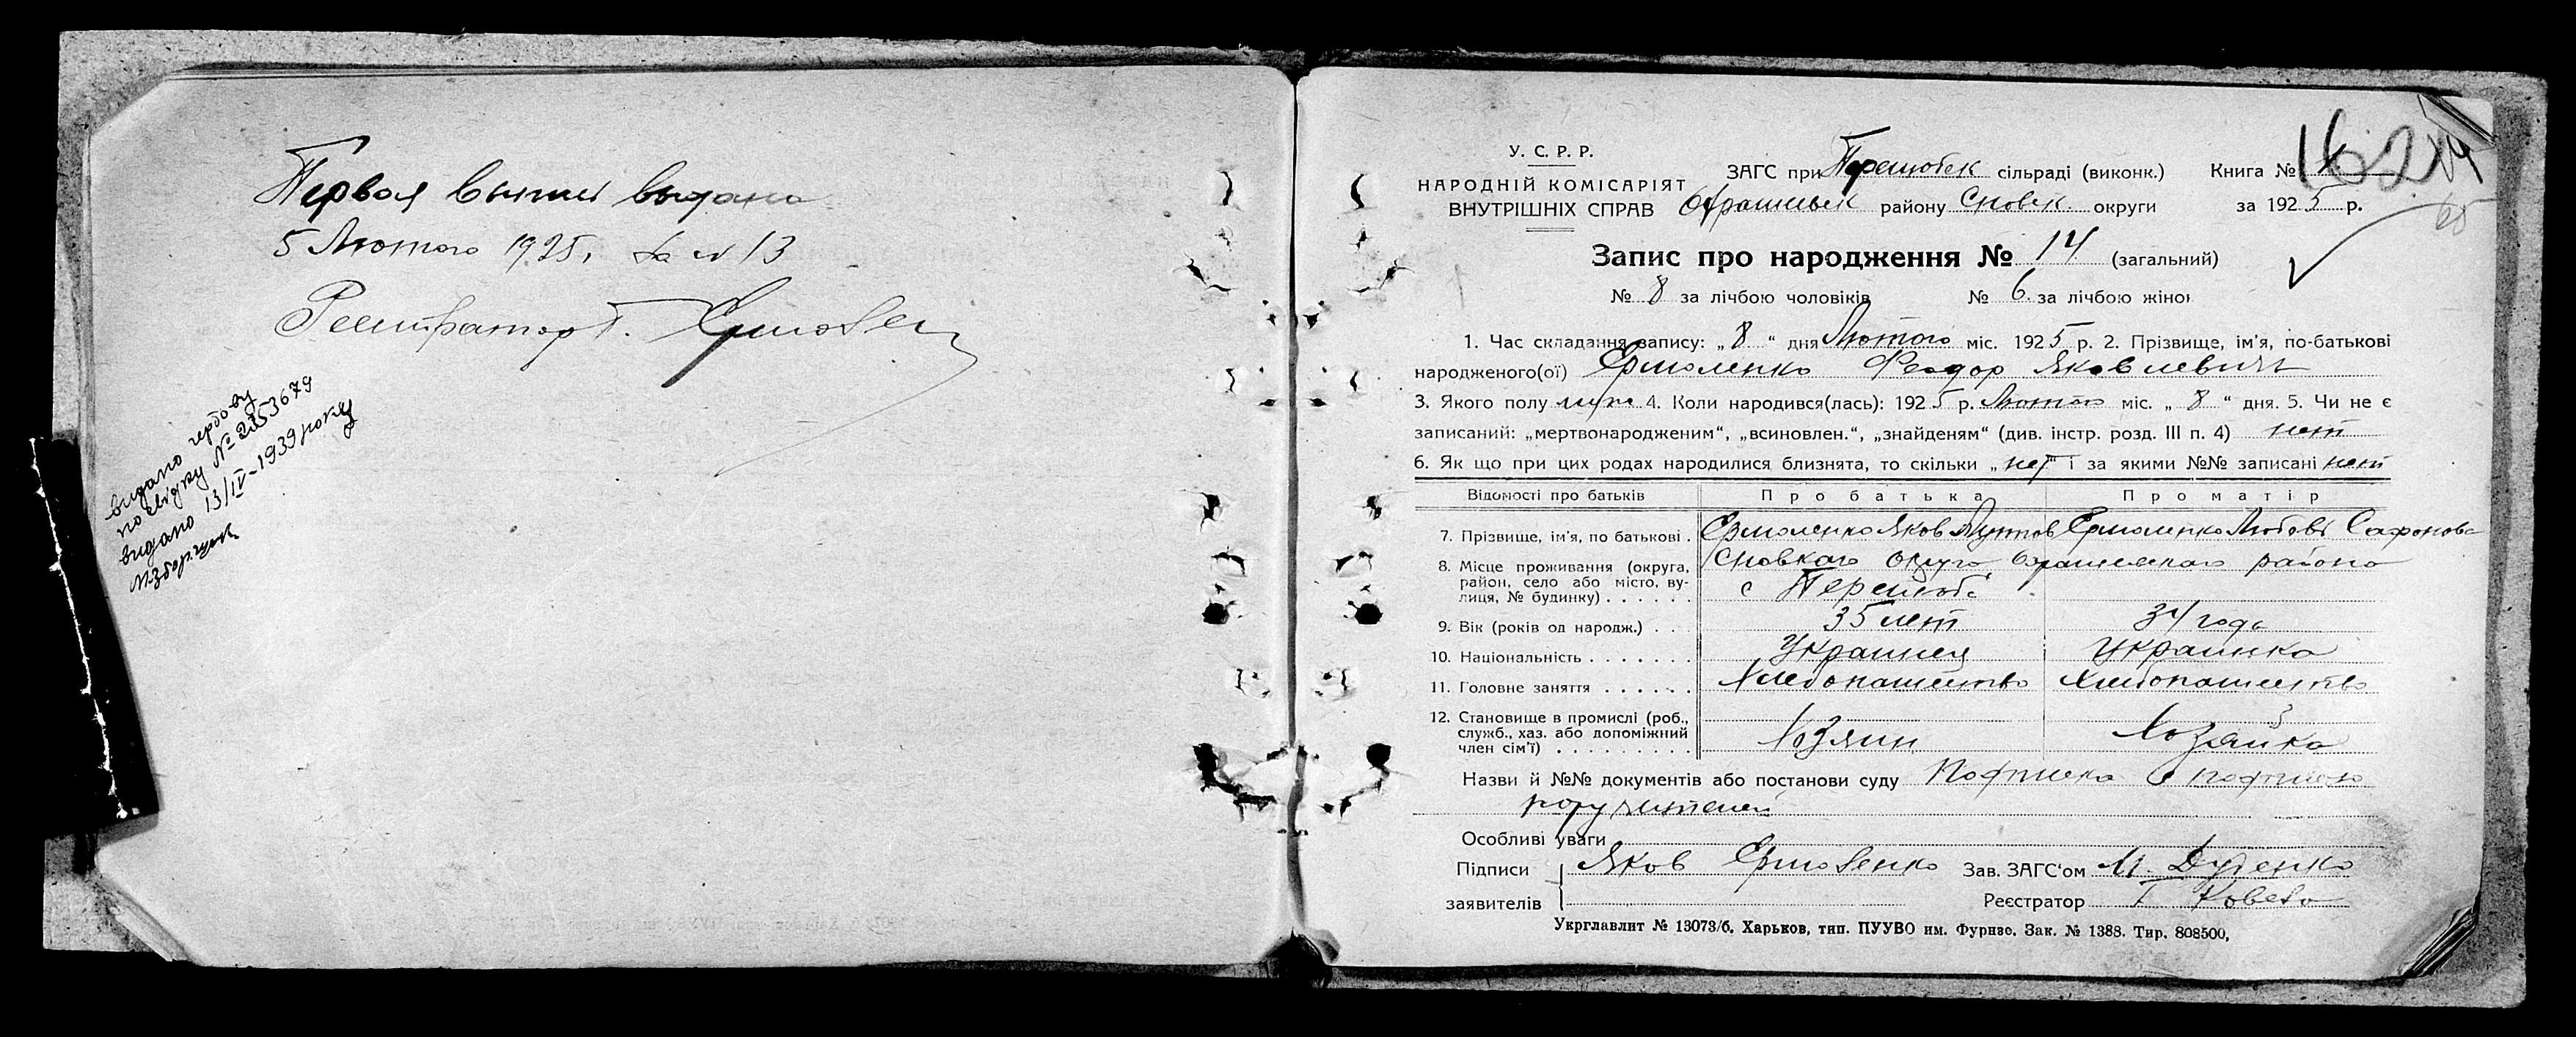 Первая выпись выдана
5 Лютого 1925, за № 13
Реєстратор Т.
видано гербову
посвідку № 2153679
видано 13/IV-1939 року
У. С. Р. Р.
НАРОДНІЙ КОМІСАРІЯТ
ВНУТРІШНІХ СПРАВ
ЗАГС при Перелюбск сільраді (виконк.) Книга №
району Сновск. округи за 1925 р.
Запис про народження № 14 (загальний)
№ 8 за лічбою чоловіків № 6 за лічбою жінок
1. Час складання запису: „8“ дня Лютого міс. 1925 р. 2. Прізвище, ім'я, по-батькові
народженого(ої) Ермоленко Феодор Яковлевич
3. Якого полу муж 4. Коли народився(лась): 1925 р. Лютого міс. „8“ дня. 5. Чи не є
записаний: „мертвонародженим“, „всиновлен.“, „знайденям“ (див. інстр. розд. III п. 4) нет
6. Як що при цих родах народилися близнята, то скільки „нет“ і за якими №№ записані нет
Відомості про батьків Про батька Про матір
7. Прізвище, ім'я, по батькові . Ермоленко Яков Ермоленко Любовь Сафонова
8. Місце проживання (округа, район, село або місто, вулиця, № будинку) . . . . . . Сновского округа района
с Перелюб
9. Вік (років од народж.) . . . 35 лет 34 года
10. Національність . . . . . . . Украинец Украинка
11. Головне заняття . . . . . . Хлебопашество Хлебопашество
12. Становище в промислі (роб., служб., хаз. або допоміжний член сім'ї) . . . . . . . . . Хозяин Хозяйка
Назви й №№ документів або постанови суду Подписка с подписью
поручителей
Особливі уваги
Підписи Яков Ермоленко Зав. ЗАГС'ом М. Дуденко
заявителів Реєстратор Т
Укрглавлит № 13073/б. Харьков, тип. ПУУВО им. Фрунзе. Зак. № 1388. Тир. 808500,